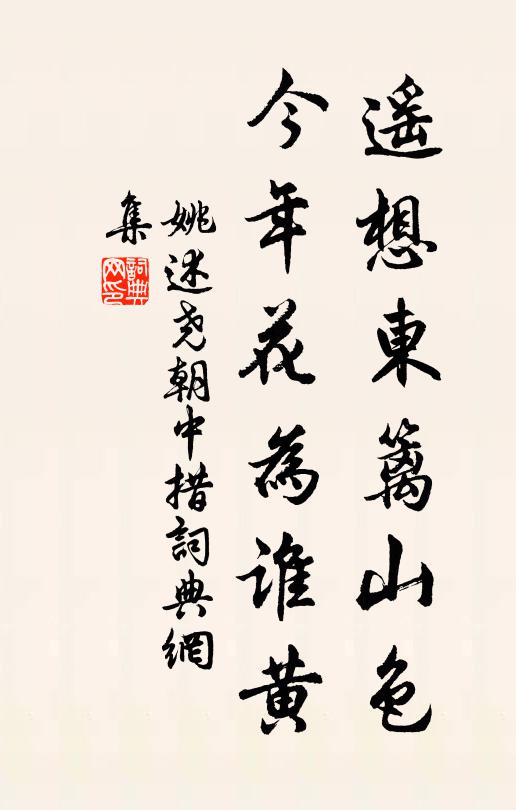 遥想東籬山色
今年花為誰黄
姚述尧朝中措詞典網
集
詞典網印